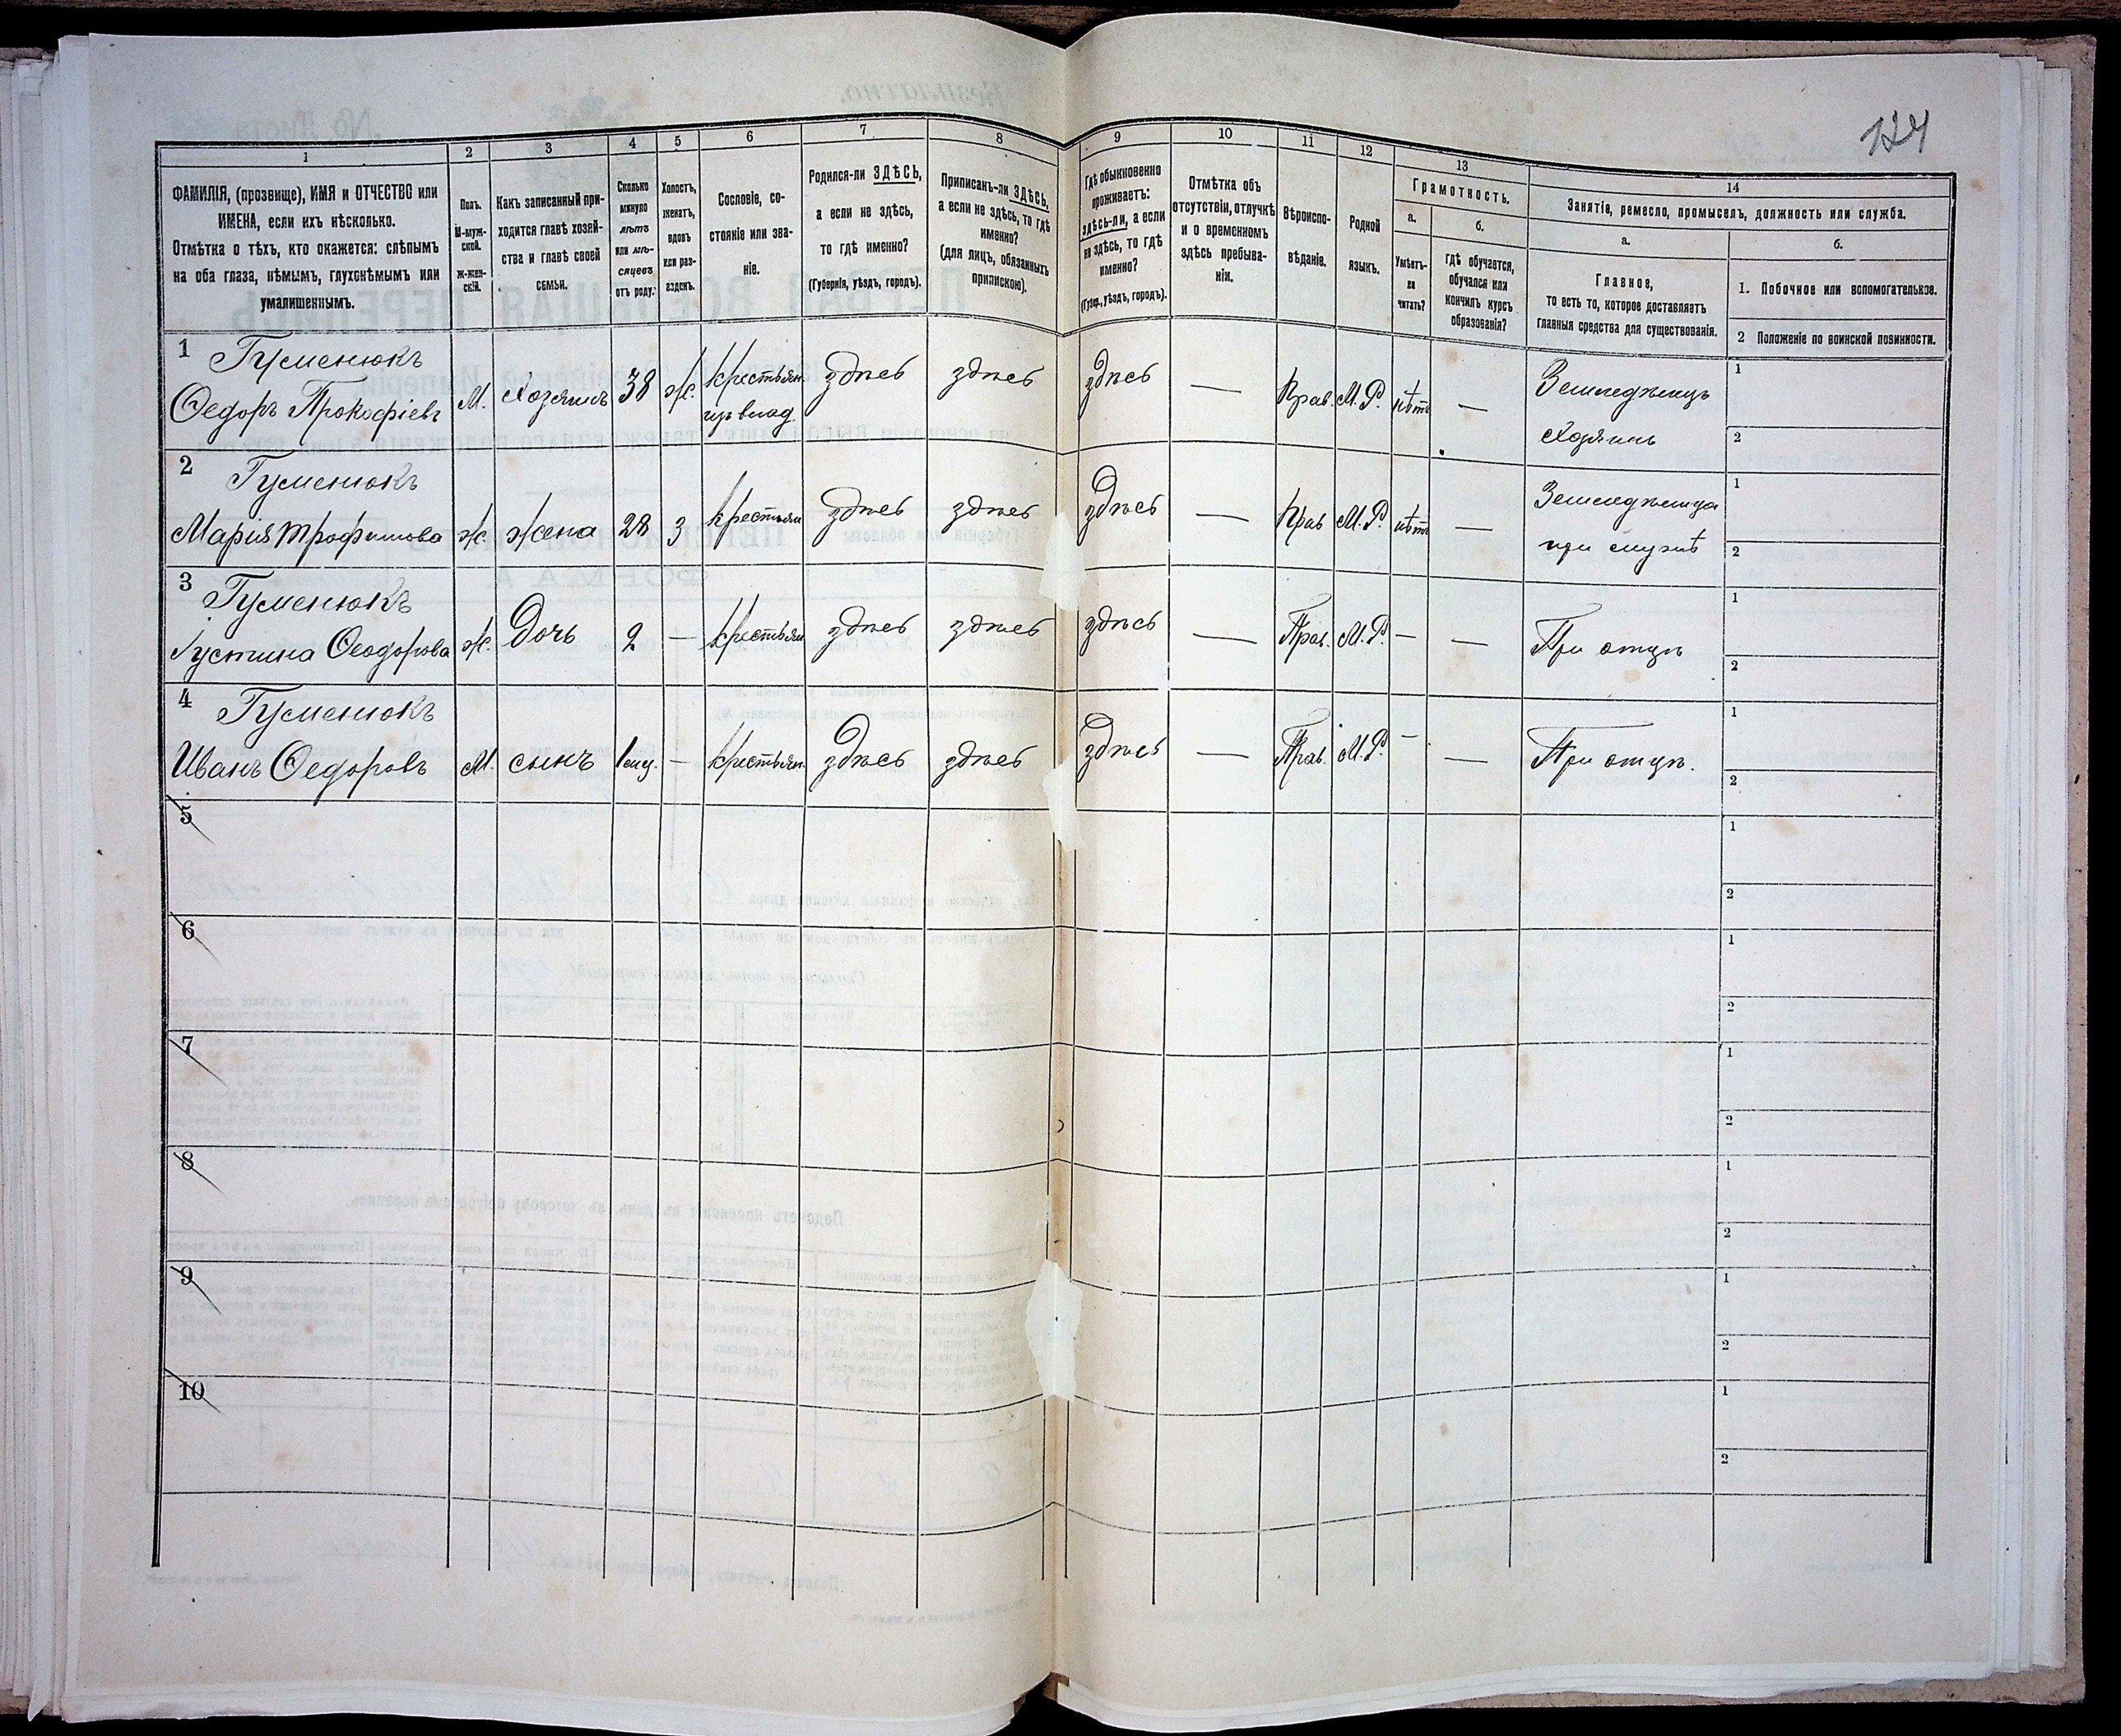 124
1
ФАМИЛІЯ, (прозвище), ИМЯ и ОТЧЕСТВО или
ИМЕНА, если ихъ нѣсколько.
Отмѣтка о тѣхъ, кто окажется: слѣпымъ
на оба глаза, нѣмымъ, глухонѣмымъ или
умалишеннымъ.
2
Полъ.
М-муж-
ской.
ж-жен-
скій.
3
Какъ записанный при-
ходится главѣ хозяй-
ства и главѣ своей
семьи.
4
Сколько
минуло
лѣтъ
или мѣ-
сяцевъ
отъ роду.
5
Холостъ,
женатъ,
вдовъ
или раз-
веденъ.
6
Сословіе, со-
стояніе или зва-
ніе.
7
Родился-ли ЗДѢСЬ,
а если не здѣсь,
то гдѣ именно?
(Губернія, уѣздъ, городъ).
8
Приписанъ-ли ЗДѢСЬ,
а если не здѣсь, то гдѣ
именно?
(для лицъ, обязанныхъ
припискою).
9
Гдѣ обыкновенно
проживаетъ:
здѣсь-ли, а если
не здѣсь, то гдѣ
именно?
(Губер., уѣздъ, городъ).
10
Отмѣтка объ
отсутствіи, отлучкѣ
и о временномъ
здѣсь пребыва-
ніи.
11
Вѣроиспо-
вѣданіе.
12
Родной
языкъ.
13
Грамотность.
а.
Умѣетъ-
ли
читать?
б.
гдѣ обучается,
обучался или
кончилъ курсъ
образованія?
14
Занятіе, ремесло, промыселъ, должность или служба.
а.
Главное,
то есть то, которое доставляетъ
главныя средства для существованія.
б.
1. Побочное или вспомогательное.
2 Положеніе по воинской повинности.
1 Гуменюкъ
Ѳедоръ Прокофіевъ М. Хозяинъ 38 ж. крестьян. здѣсь здѣсь здѣсь — Прав. М.Р. нѣтъ — Земледѣлецъ
хозяинъ
1
2
2 Гуменюкъ
Марія Трофимова ж. жена 28 З крестьян здѣсь здѣсь здѣсь — Прав М.Р. нѣтъ — Земледѣлица
при
1
2
3 Гуменюкъ
Іустина Ѳеодорова ж. Дочь 2 — крестьян здѣсь здѣсь здѣсь — Прав. М.Р. — — При отцѣ
1
2
4 Гуменюкъ
Иванъ Ѳедоровъ М. сынъ — крестьян. здѣсь здѣсь здѣсь — Прав. М.Р. — — При отцѣ.
1
2
5
1
2
6
1
2
7
1
2
8
1
2
9
1
2
10
1
2